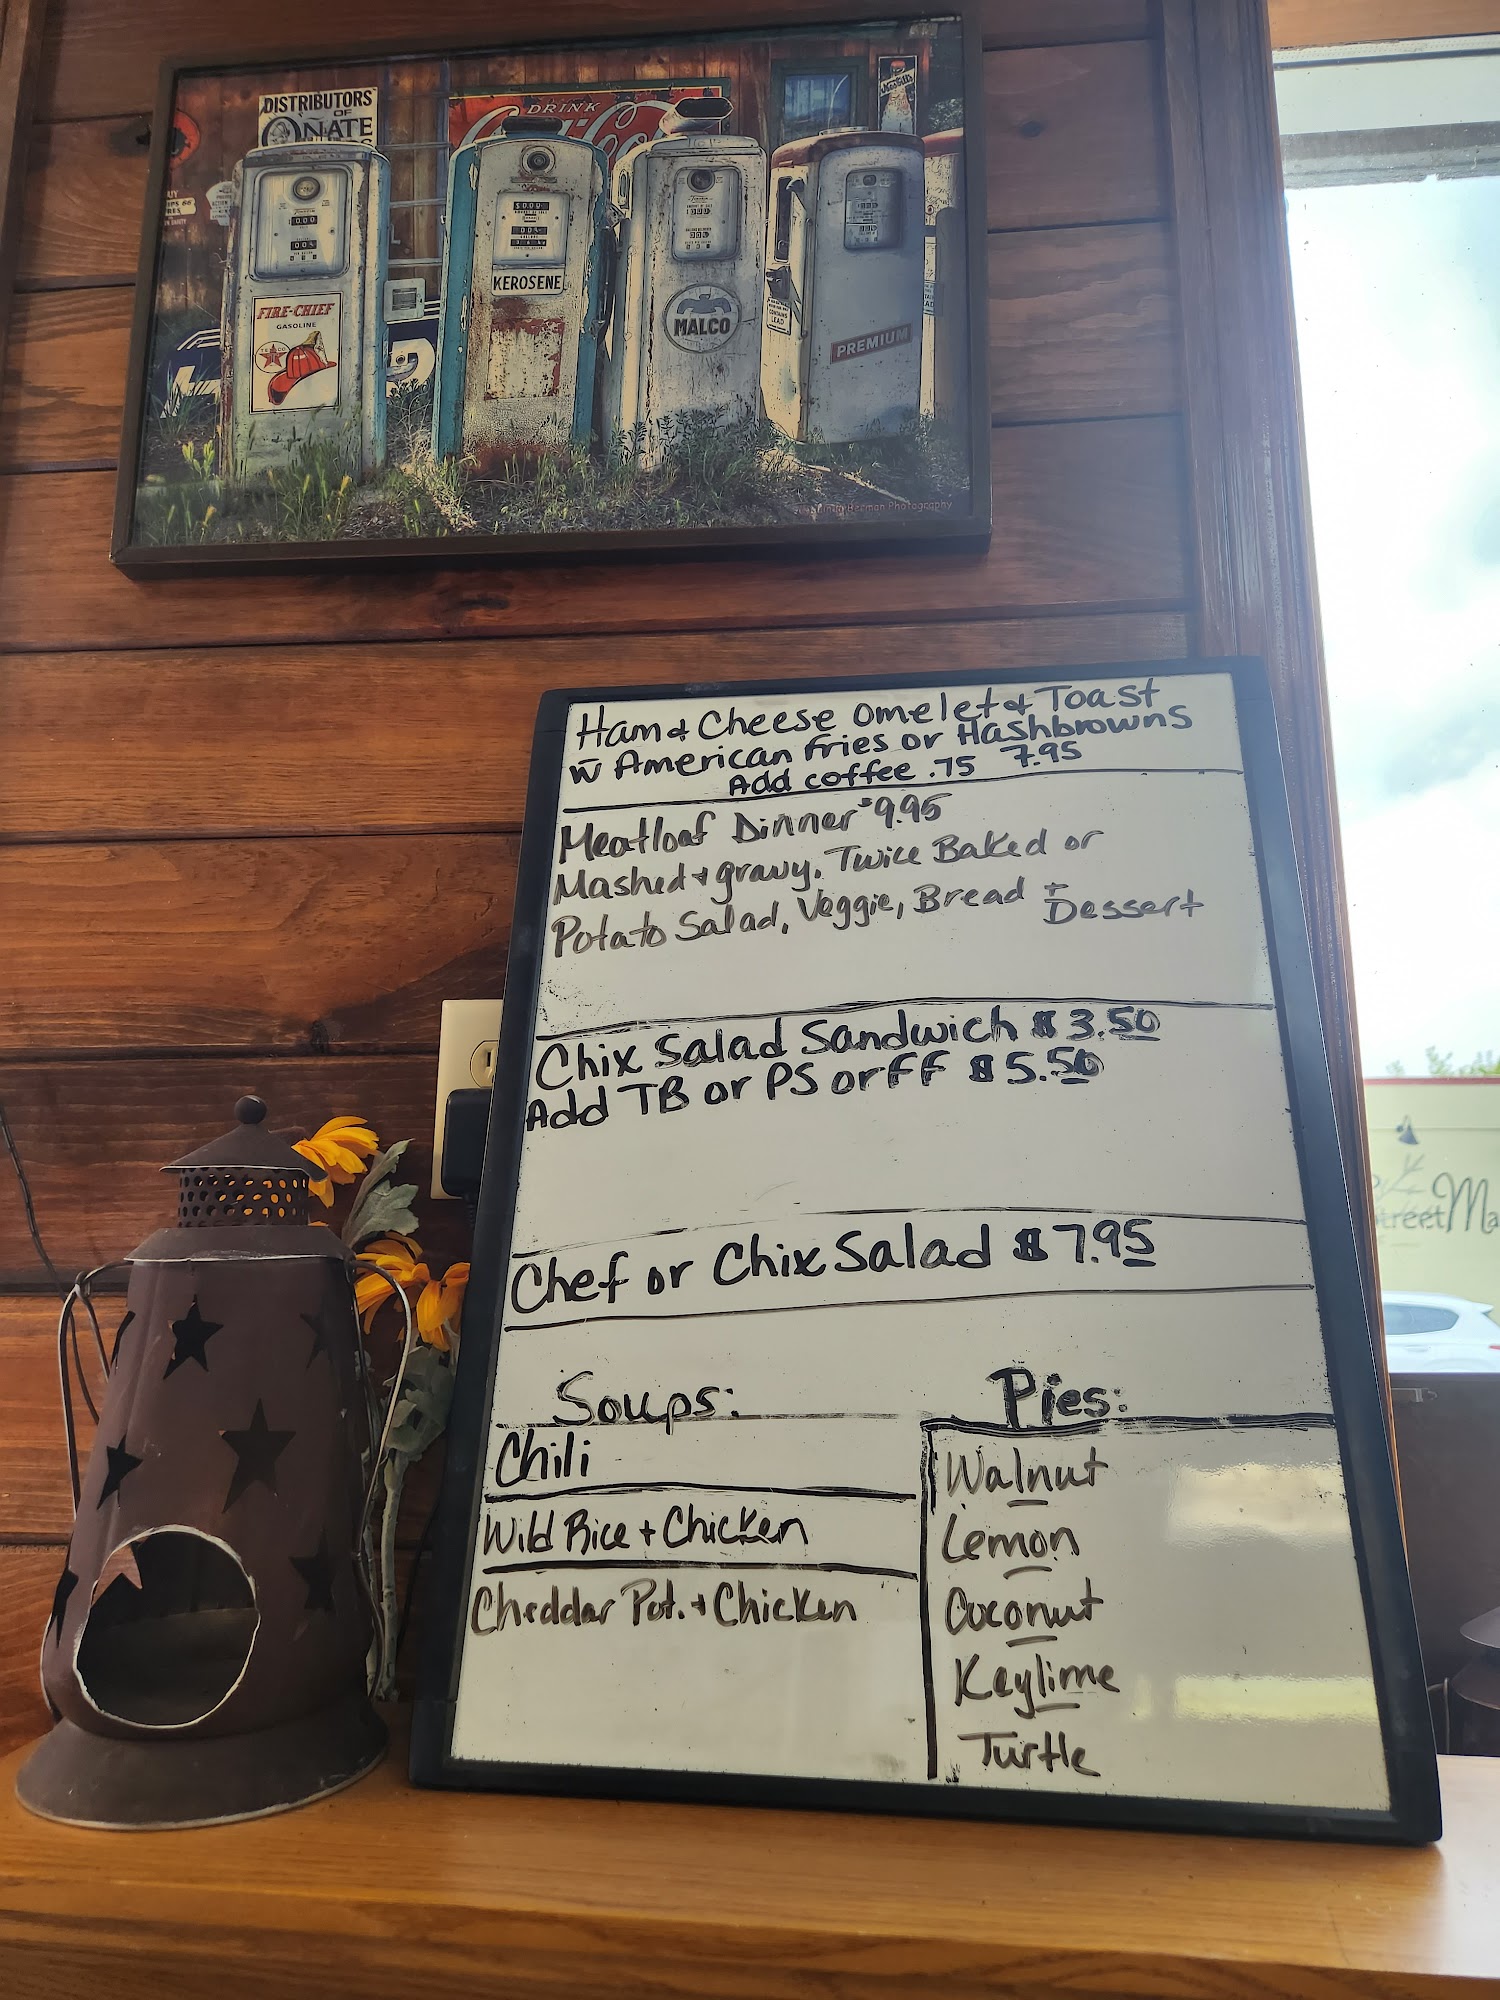 DISTRIBUTORS
OF
ONATE
DRINK
FIRE-CHIEF
GASOLINE
KEROSENE
MALCO
CONTAINS
LEAD
PREMIUM
Herman Photography
Ham & Cheese Omelet & Toast
w American Fries or Hashbrowns
Add coffee .75 7.95
Meatloaf Dinner $9.95
Mashed + gravy, Twice Baked or
Potato Salad, Veggie, Bread +
Dessert
Chix Salad Sandwich $3.50
Add TB or PS or FF $5.50
Chef or Chix Salad $7.95
Soups:
Chili
Wild Rice + Chicken
Cheddar Pot. + Chicken
Pies:
Walnut
Lemon
Coconut
Keylime
Turtle
treet Ma